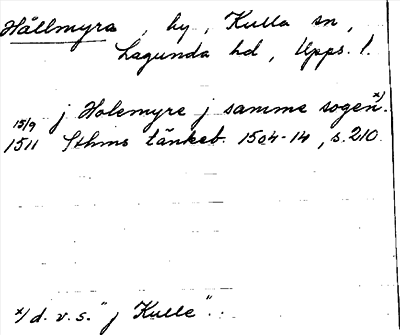 Hällmyra, by, Kulla sn,
Lagunda hd, Upps. l.
15/9 j Holemyre j samme sogen x).
1511 Sthms tänkeb. 1504-14, s. 210
x) d. v. s. "j Kulle".